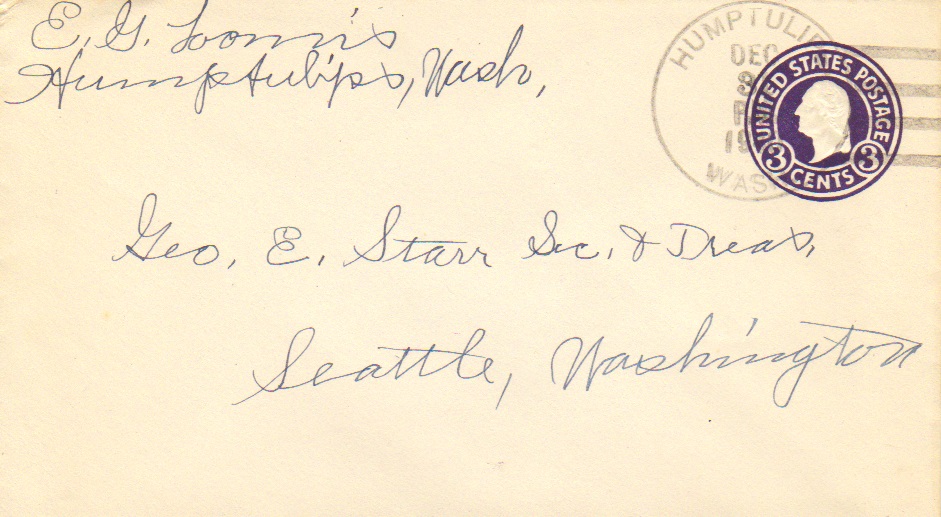 E. G. Loomis
Humptulips, Wash,
HUMPTULIPS
DEC
WASH
UNITED STATES POSTAGE
3 CENTS 3
Geo. E. Starr Sc. & Treas,
Seattle, Washington